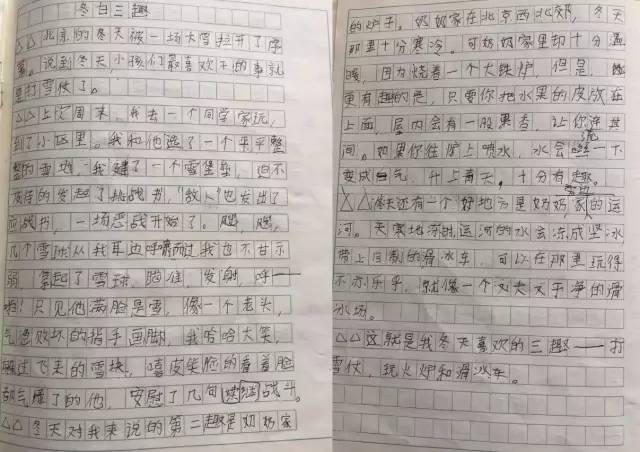 冬日三趣
△△北京的冬天被一场大雪拉开了序
幕。说到冬天,小孩们最喜欢干的事就
是打雪仗了。
△△上次周末,我去一个同学家玩,
到了小区里。我和他选了一个平平整
整的雪地,我建了一个雪堡垒,迫不
及待的发起了挑战书,“敌人”也发出了
应战书,一场恶战开始了。嗖,嗖,
几个雪球从我耳边呼啸而过,我也不甘示
弱,拿起了雪球,瞄准,发射,呼——
啪!只见他满脸是雪,像一个老头,
气急败坏的指手画脚,我哈哈大笑,
躲过飞来的雪块,嘻皮笑脸的看着脸
都气爆了的他,安慰了几句继续战斗。
△△冬天对我来说的第二趣是奶奶家
的炉子。奶奶家在北京西北郊,冬天
那里十分寒冷。可奶奶家里却十分温
暖,因为烧着一个大铁炉,但是,
更有趣的是,只要你把水果的皮放在
上面,屋内会有一股果香,让你
间。如果你往炉上喷水,水会一下
变成白气,升上青天,十分有趣。
△△冬天还有一个好地方是奶奶家旁边的运
河。天寒地冻时,运河的水会冻成坚冰,
带上自制的滑冰车,可以在那里玩得
不亦乐乎,就像一个又大又干净的滑
冰场。
△△这就是我冬天喜欢的三趣——打
雪仗,玩火炉和滑冰车。